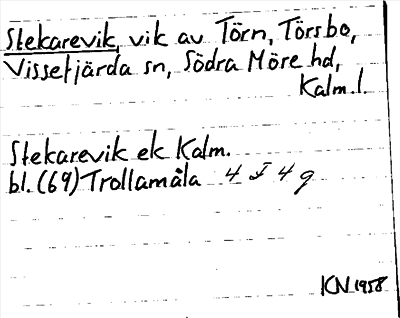 Stekarevik, vik av Törn, Törsbo,
Vissefjärda sn, Södra Möre hd,
Kalm. l.
Stekarevik ek Kalm.
bl. (69) Trollamåla 4 I 4 g
KN 1958